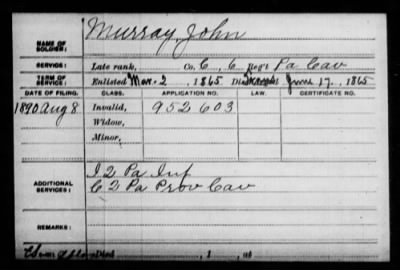 NAME OF SOLDIER: Murray, John
SERVICE: Late rank, Co. C, 6, Reg't Pa Cav
TERM OF SERVICE: Enlisted Mar. 2, 1865 June 17, 1865
DATE OF FILING. CLASS. APPLICATION NO. LAW. CERTIFICATE NO.
1890 Aug 8 Invalid, 952603
Widow,
Minor,
ADDITIONAL SERVICES: I 2 Pa Inf
C 2 Pa Prov Cav
REMARKS: